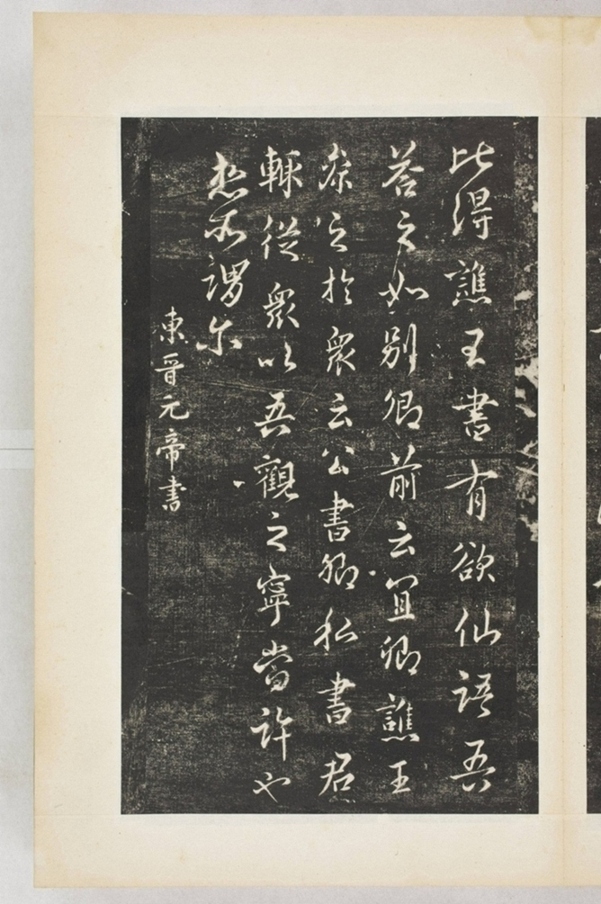 比得譙王書有欲仙語吾
答之如別卿前云宜卿譙王
亦之於衆云公書卿私書君
輒從衆以吾觀之寧當許也
想所謂尔
東晉元帝書